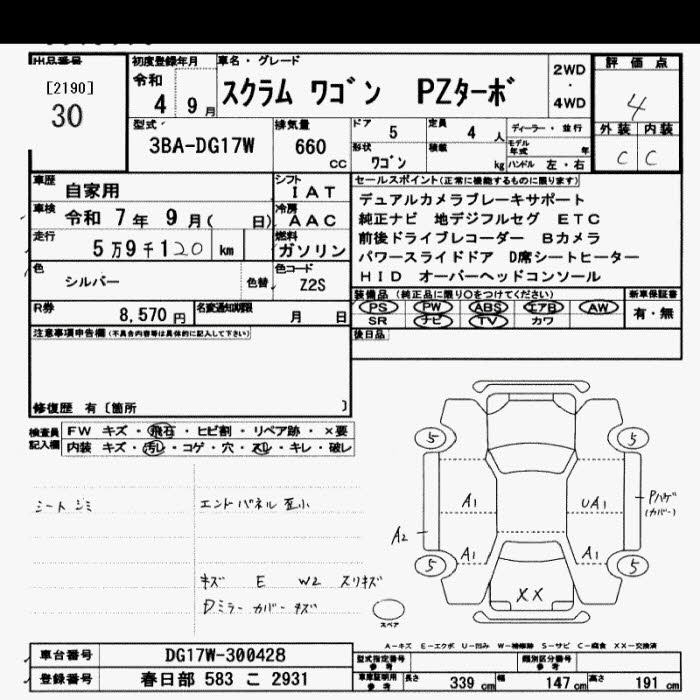 出品番号
[2190]
30
初度登録年月
令和
4 9 月
車名・グレード
スクラム ワゴン PZターボ
2WD
・
4WD
評価点
4
外装 内装
C C
型式
3BA-DG17W
排気量
660
CC
ドア
5
定員
4 人
ディーラー・並行
形状
ワゴン
積載
kg
モデル年式
年
ハンドル 左・右
車歴
自家用
シフト
IAT
車検
令和 7 年 9 月( 日)
冷房
AAC
走行
5万9千120 km
燃料
ガソリン
色
シルバー
色替
色コード
Z2S
R券
8,570 円
名変通知期限
月 日
セールスポイント(正常に機能するものに限ります)
デュアルカメラブレーキサポート
純正ナビ 地デジフルセグ ETC
前後ドライブレコーダー Bカメラ
パワースライドドア D席シートヒーター
HID オーバーヘッドコンソール
装備品 (純正品に限り○をつけてください)
PS PW ABS エアB AW
SR ナビ TV カワ
新車保証書
有・無
後日品
注意事項申告欄(不具合内容等は具体的に記入して下さい)
修復歴 有〔箇所 〕
検査員記入欄
FW キズ・飛石・ヒビ割・リペア跡・×要
内装 キズ・汚レ・コゲ・穴・スレ・キレ・破レ
シート シミ
エンドパネル 歪小
キズ E W2 スリキズ
Dミラー カバー キズ
5 5
A1 UA1 Pハゲ
(カバー)
A2
A1 A1
5 5
XX
スペア
A-キズ E-エクボ U-凹み W-補修跡 S-サビ C-腐食 XX-交換済
車台番号 DG17W-300428
登録番号 春日部 583 こ 2931
型式指定番号
参考
類別区分番号
参考
車庫証明用
参考
長さ 339 cm 幅 147 cm 高さ 191 cm